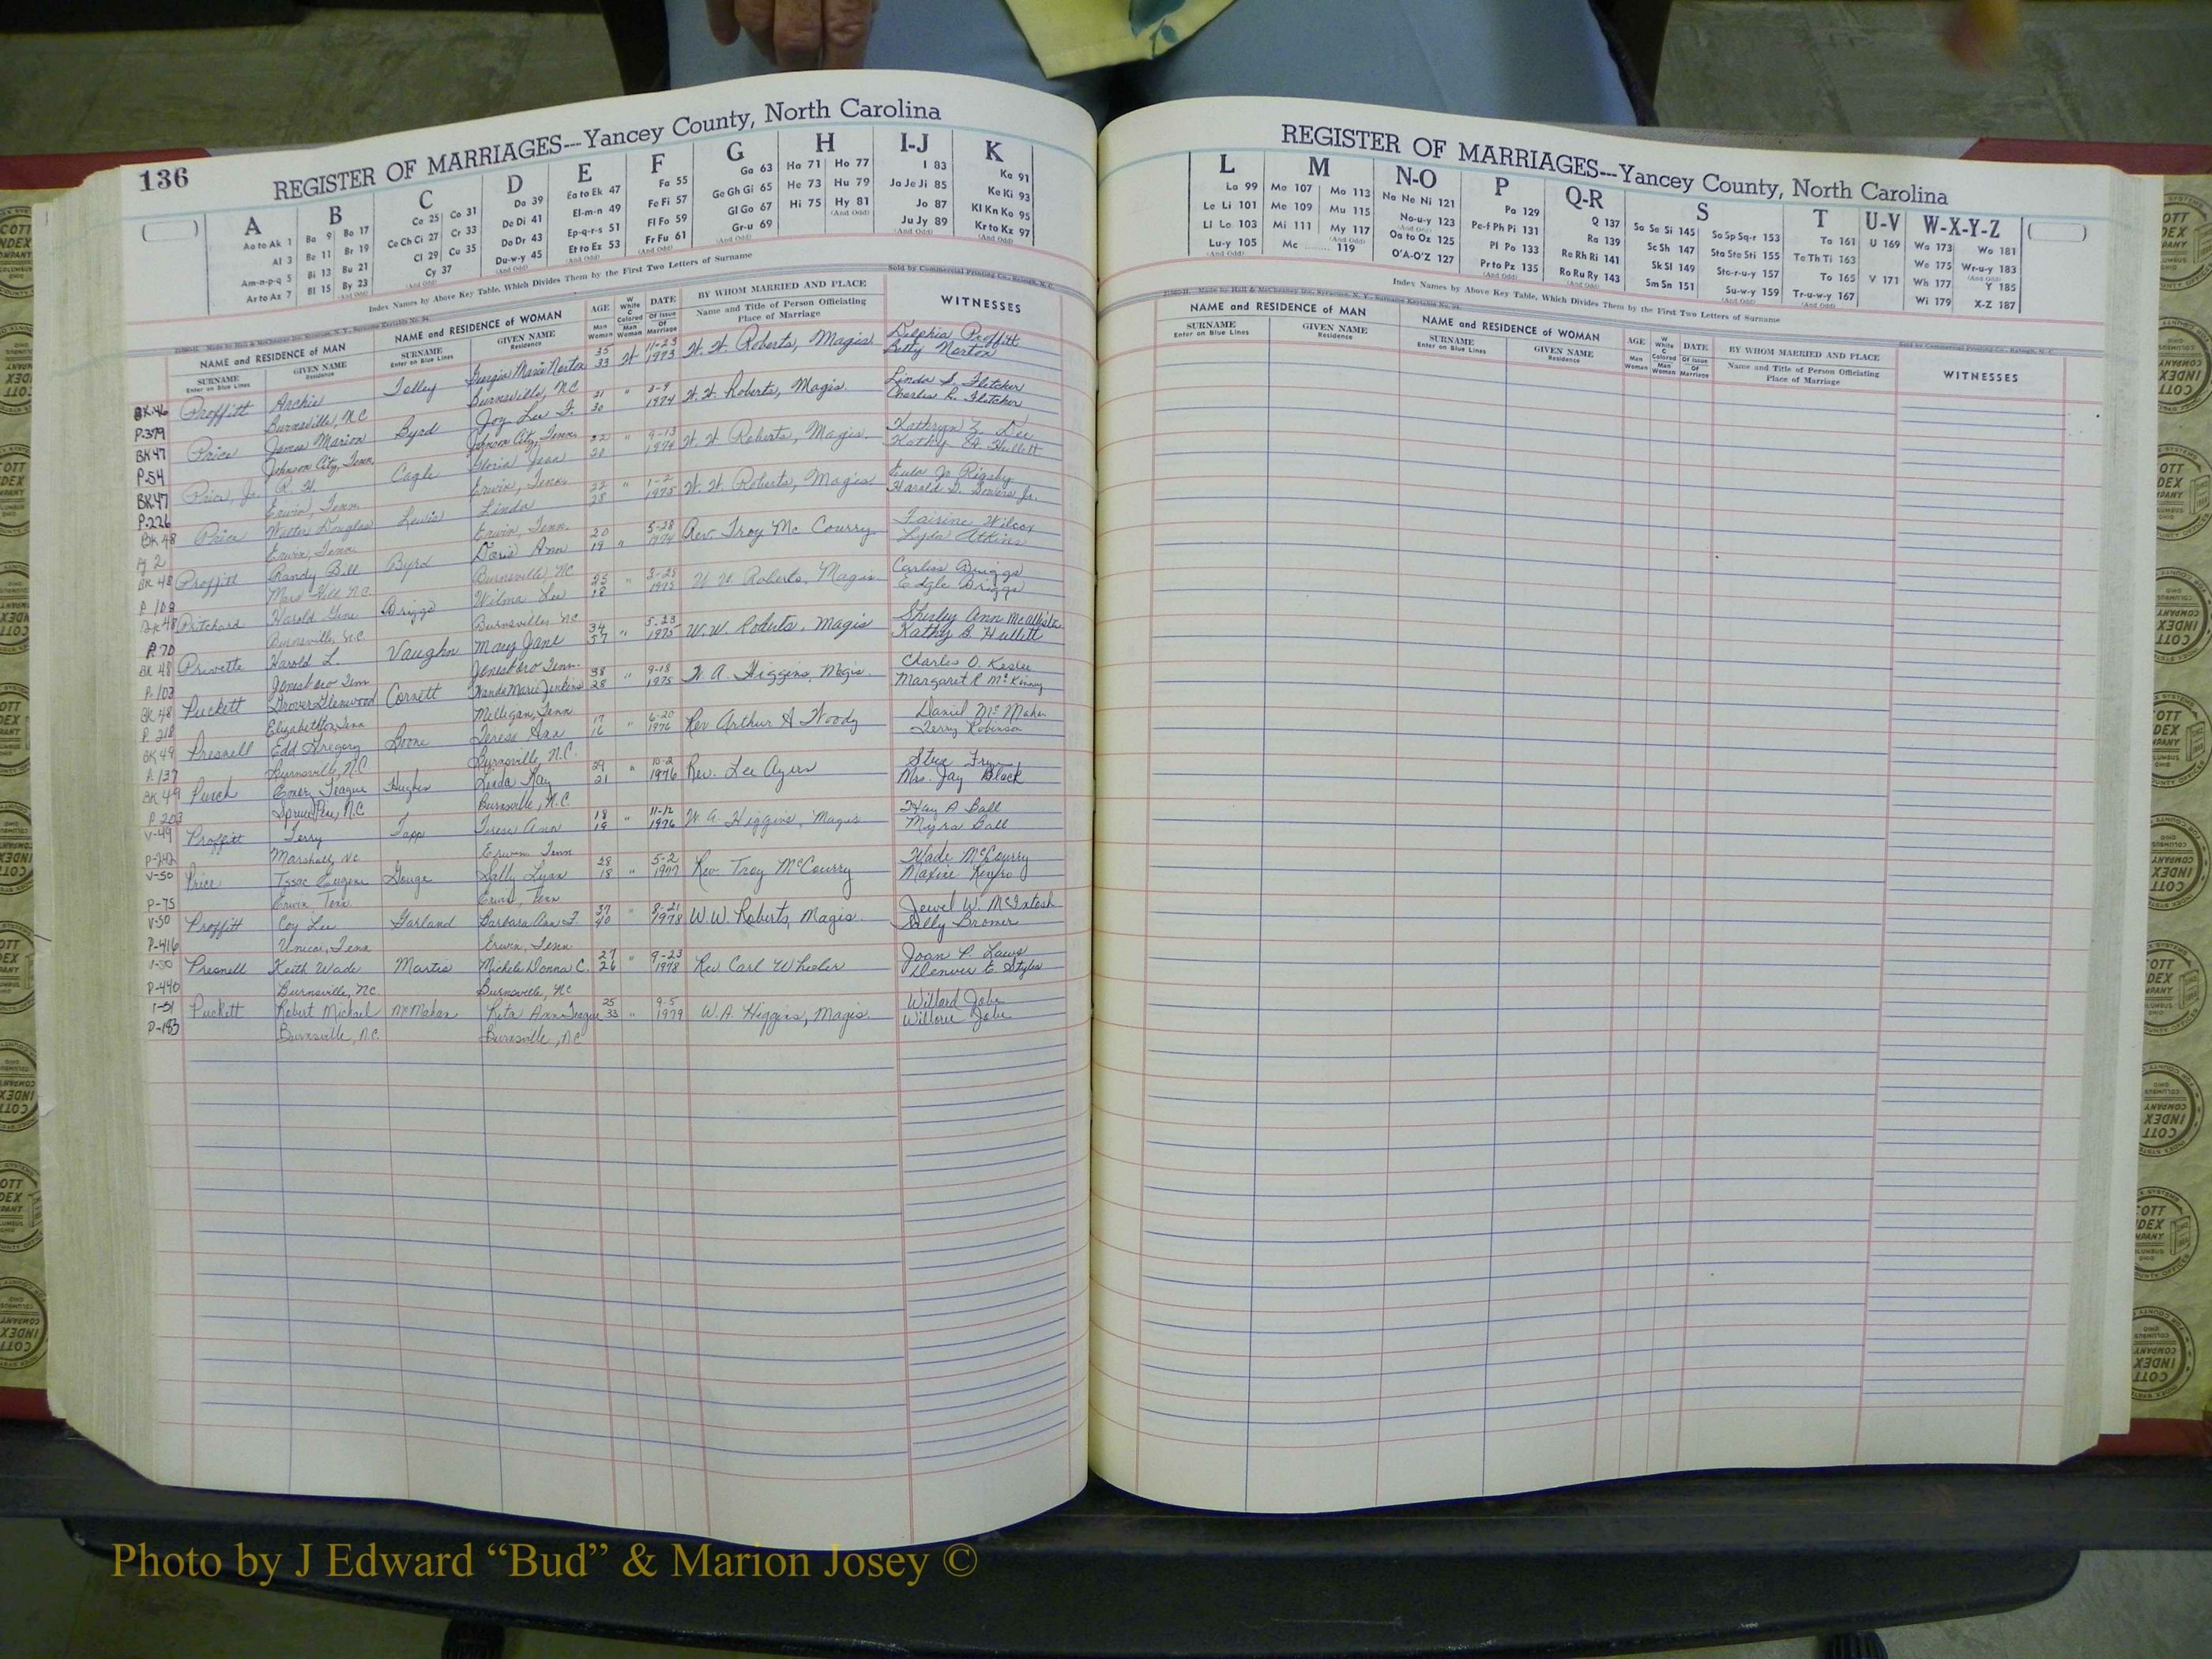 136
REGISTER OF MARRIAGES---Yancey County, North Carolina
A B C D E F G H I-J K
Aa to Ak 1 Ba 9 Bo 17 Ca 25 Co 31 Da 39 Ea to Ek 47 Fa 55 Ga 63 Ha 71 Ho 77 I 83 Ka 91
Al 3 Be 11 Br 19 Ce Ch Ci 27 Cr 33 De Di 41 El-m-n 49 Fe Fi 57 Ge Gh Gi 65 He 73 Hu 79 Ja Je Ji 85 Ke Ki 93
Am-n-p-q 5 Bi 13 Bu 21 Cl 29 Cu 35 Do Dr 43 Ep-q-r-s 51 Fl Fo 59 Gl Go 67 Hi 75 Hy 81 Jo 87 Kl Kn Ko 95
Ar to Az 7 Bl 15 By 23 Cy 37 Du-w-y 45 Et to Ez 53 Fr Fu 61 Gr-u 69 Ju Jy 89 Kr to Kz 97
Index Names by Above Key Table, Which Divides Them by the First Two Letters of Surname
Sold by Commercial Printing Co., Raleigh, N. C.
NAME and RESIDENCE of MAN NAME and RESIDENCE of WOMAN AGE DATE BY WHOM MARRIED AND PLACE WITNESSES
SURNAME GIVEN NAME SURNAME GIVEN NAME Name and Title of Person Officiating
Enter on Blue Lines Residence Enter on Blue Lines Residence Man Woman White Colored Of Issue Of Marriage Place of Marriage
BK 46 Proffitt Archie Tolley Georgia Marie Norton 35 33 W 11-23 1973 W. W. Roberts, Magis. Delphia Proffitt
P-379 Burnsville, N.C. Burnsville, N.C. Betty Norton
BK 47 Price James Marion Byrd Joy Lee F. 30 " 1974 W. W. Roberts, Magis. Linda S. Fletcher
P-54 Johnson City, Tenn. Johnson City, Tenn. Charles R. Fletcher
BK 47 Price, Jr. R. H. Cagle Gloria Jean 22 20 " 9-13 1974 W. W. Roberts, Magis. Kathryn Z. Lee
P-226 Erwin, Tenn. Erwin, Tenn. Kathy B. Hullett
BK 48 Price Walter Douglas Lewis Linda 22 28 " 1-2 1975 W. W. Roberts, Magis. Eula Jo Rigsby
Pg 2 Erwin, Tenn. Erwin, Tenn. Harold D. Bowers Jr.
BK 48 Proffitt Randy Bill Byrd Doris Ann 20 19 " 5-28 Rev. Troy McCourry Fairine Wilcox
P 109 Mars Hill, N.C. Burnsville, NC Lyda Atkins
BK 48 Pritchard Harold Gene Briggs Wilma Lee 25 18 " 1975 W. W. Roberts, Magis. Carliss Briggs
P. 70 Burnsville, N.C. Burnsville, NC Edgle Briggs
BK 48 Privette Harold L. Vaughn Mary Jane 34 37 " 5-23 1975 W.W. Roberts, Magis Shirley Ann McAllister
P. 102 Jonesboro Tenn Jonesboro Tenn. Kathy B. Hullett
BK 48 Puckett Grover Glenwood Cornett Wanda Marie Jenkins 38 28 " 9-18 1975 W. A. Higgins, Magis. Charles O. Keslee
P. 218 Elizabethton, Tenn Milligan, Tenn Margaret R McKinney
BK 49 Presnell Edd Gregory Boone Teresa Ann 17 16 " 6-20 1976 Rev Arthur A Woody Daniel McMahan
P. 137 Burnsville, N.C Burnsville, N.C. Terry Robinson
BK 49 Purch Emery Teague Hughes Linda Kay 29 21 " 10-2 1976 Rev. Lee Ayers
P. 203 Spruce Pine, N.C Burnsville, N.C. Mrs. Jay Black
V-49 Proffitt Terry Tapp Teresa Ann 18 19 " 11-12 1976 W. A. Higgins, Magis Hay A Ball
P-242 Marshall, NC Erwin Tenn Myra Ball
V-50 Price Issac Eugene Gouge Sally Lynn 28 18 " 5-2 1977 Rev Troy McCourry Wade McCourry
P-75 Erwin Tenn Erwin, Tenn Maxine Renfro
V-50 Proffitt Coy Lee Garland Barbara Ann F. 37 40 " 8-21 1978 W.W. Roberts, Magis. Jewel W. McIntosh
P-416 Unicoi, Tenn Erwin, Tenn Sally Bromer
V-50 Presnell Keith Wade Martin Michele Donna C. 27 26 " 9-23 1978 Rev Carl Wheeler Joan P. Laws
P-440 Burnsville, NC. Burnsville, NC Denver E. Styles
V-51 Puckett Robert Michael McMahan Rita Ann Teague 25 33 " 9-5 1979 W.A. Higgins, Magis. Willard Jobe
P-183 Burnsville, N.C. Burnsville, N.C Willowie Jobe
REGISTER OF MARRIAGES---Yancey County, North Carolina
L M N-O P Q-R S T U-V W-X-Y-Z
La 99 Ma 107 Mo 113 Na Ne Ni 121 Pa 129 Q 137 Sa Se Si 145 So Sp Sq-r 153 Ta 161 U 169 Wa 173 Wo 181
Le Li 101 Me 109 Mu 115 No-u-y 123 Pe-f Ph Pi 131 Ra 139 Sc Sh 147 Sta Ste Sti 155 Te Th Ti 163 We 175 Wr-u-y 183
Ll Lo 103 Mi 111 My 117 Oa to Oz 125 Pl Po 133 Re Rh Ri 141 Sk Sl 149 Sto-r-u-y 157 To 165 V 171 Wh 177 Y 185
Lu-y 105 Mc 119 O'A-O'Z 127 Pr to Pz 135 Ro Ru Ry 143 Sm Sn 151 Su-w-y 159 Tr-u-w-y 167 Wi 179 X-Z 187
Index Names by Above Key Table, Which Divides Them by the First Two Letters of Surname
NAME and RESIDENCE of MAN NAME and RESIDENCE of WOMAN AGE DATE BY WHOM MARRIED AND PLACE WITNESSES
SURNAME GIVEN NAME SURNAME GIVEN NAME Name and Title of Person Officiating
Enter on Blue Lines Residence Enter on Blue Lines Residence Man Woman White Colored Of Issue Of Marriage Place of Marriage
Photo by J Edward “Bud” & Marion Josey ©